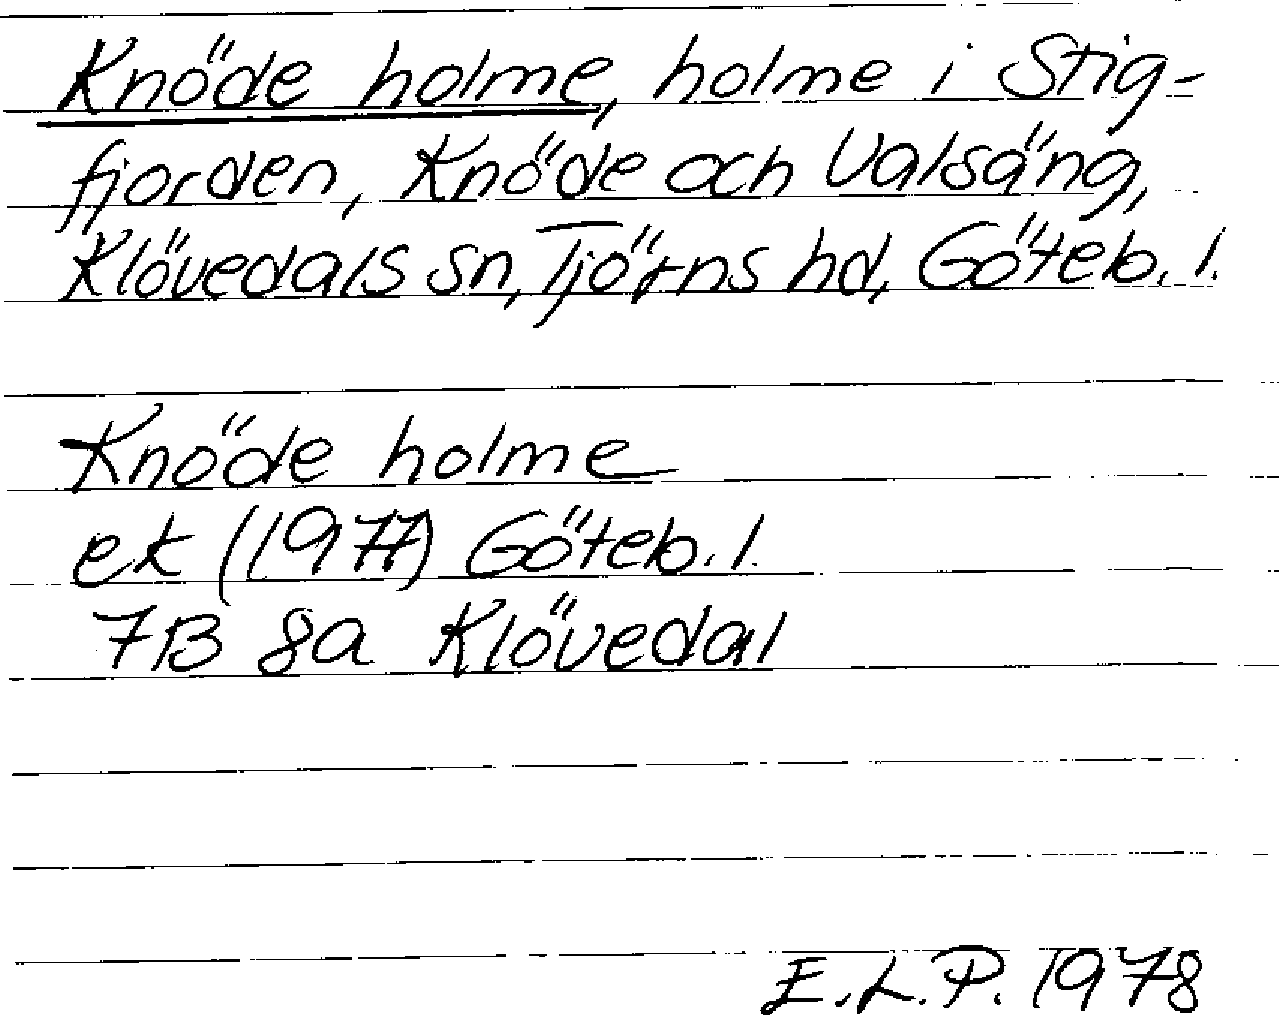 Knöde holme, holme i Stig-
fjorden, Knöde och Valsäng,
Klövedals sn, Tjörns hd, Göteb. l.
Knöde holme
ek (1977) Göteb. l.
7B 8a Klövedal
E.L.P. 1978